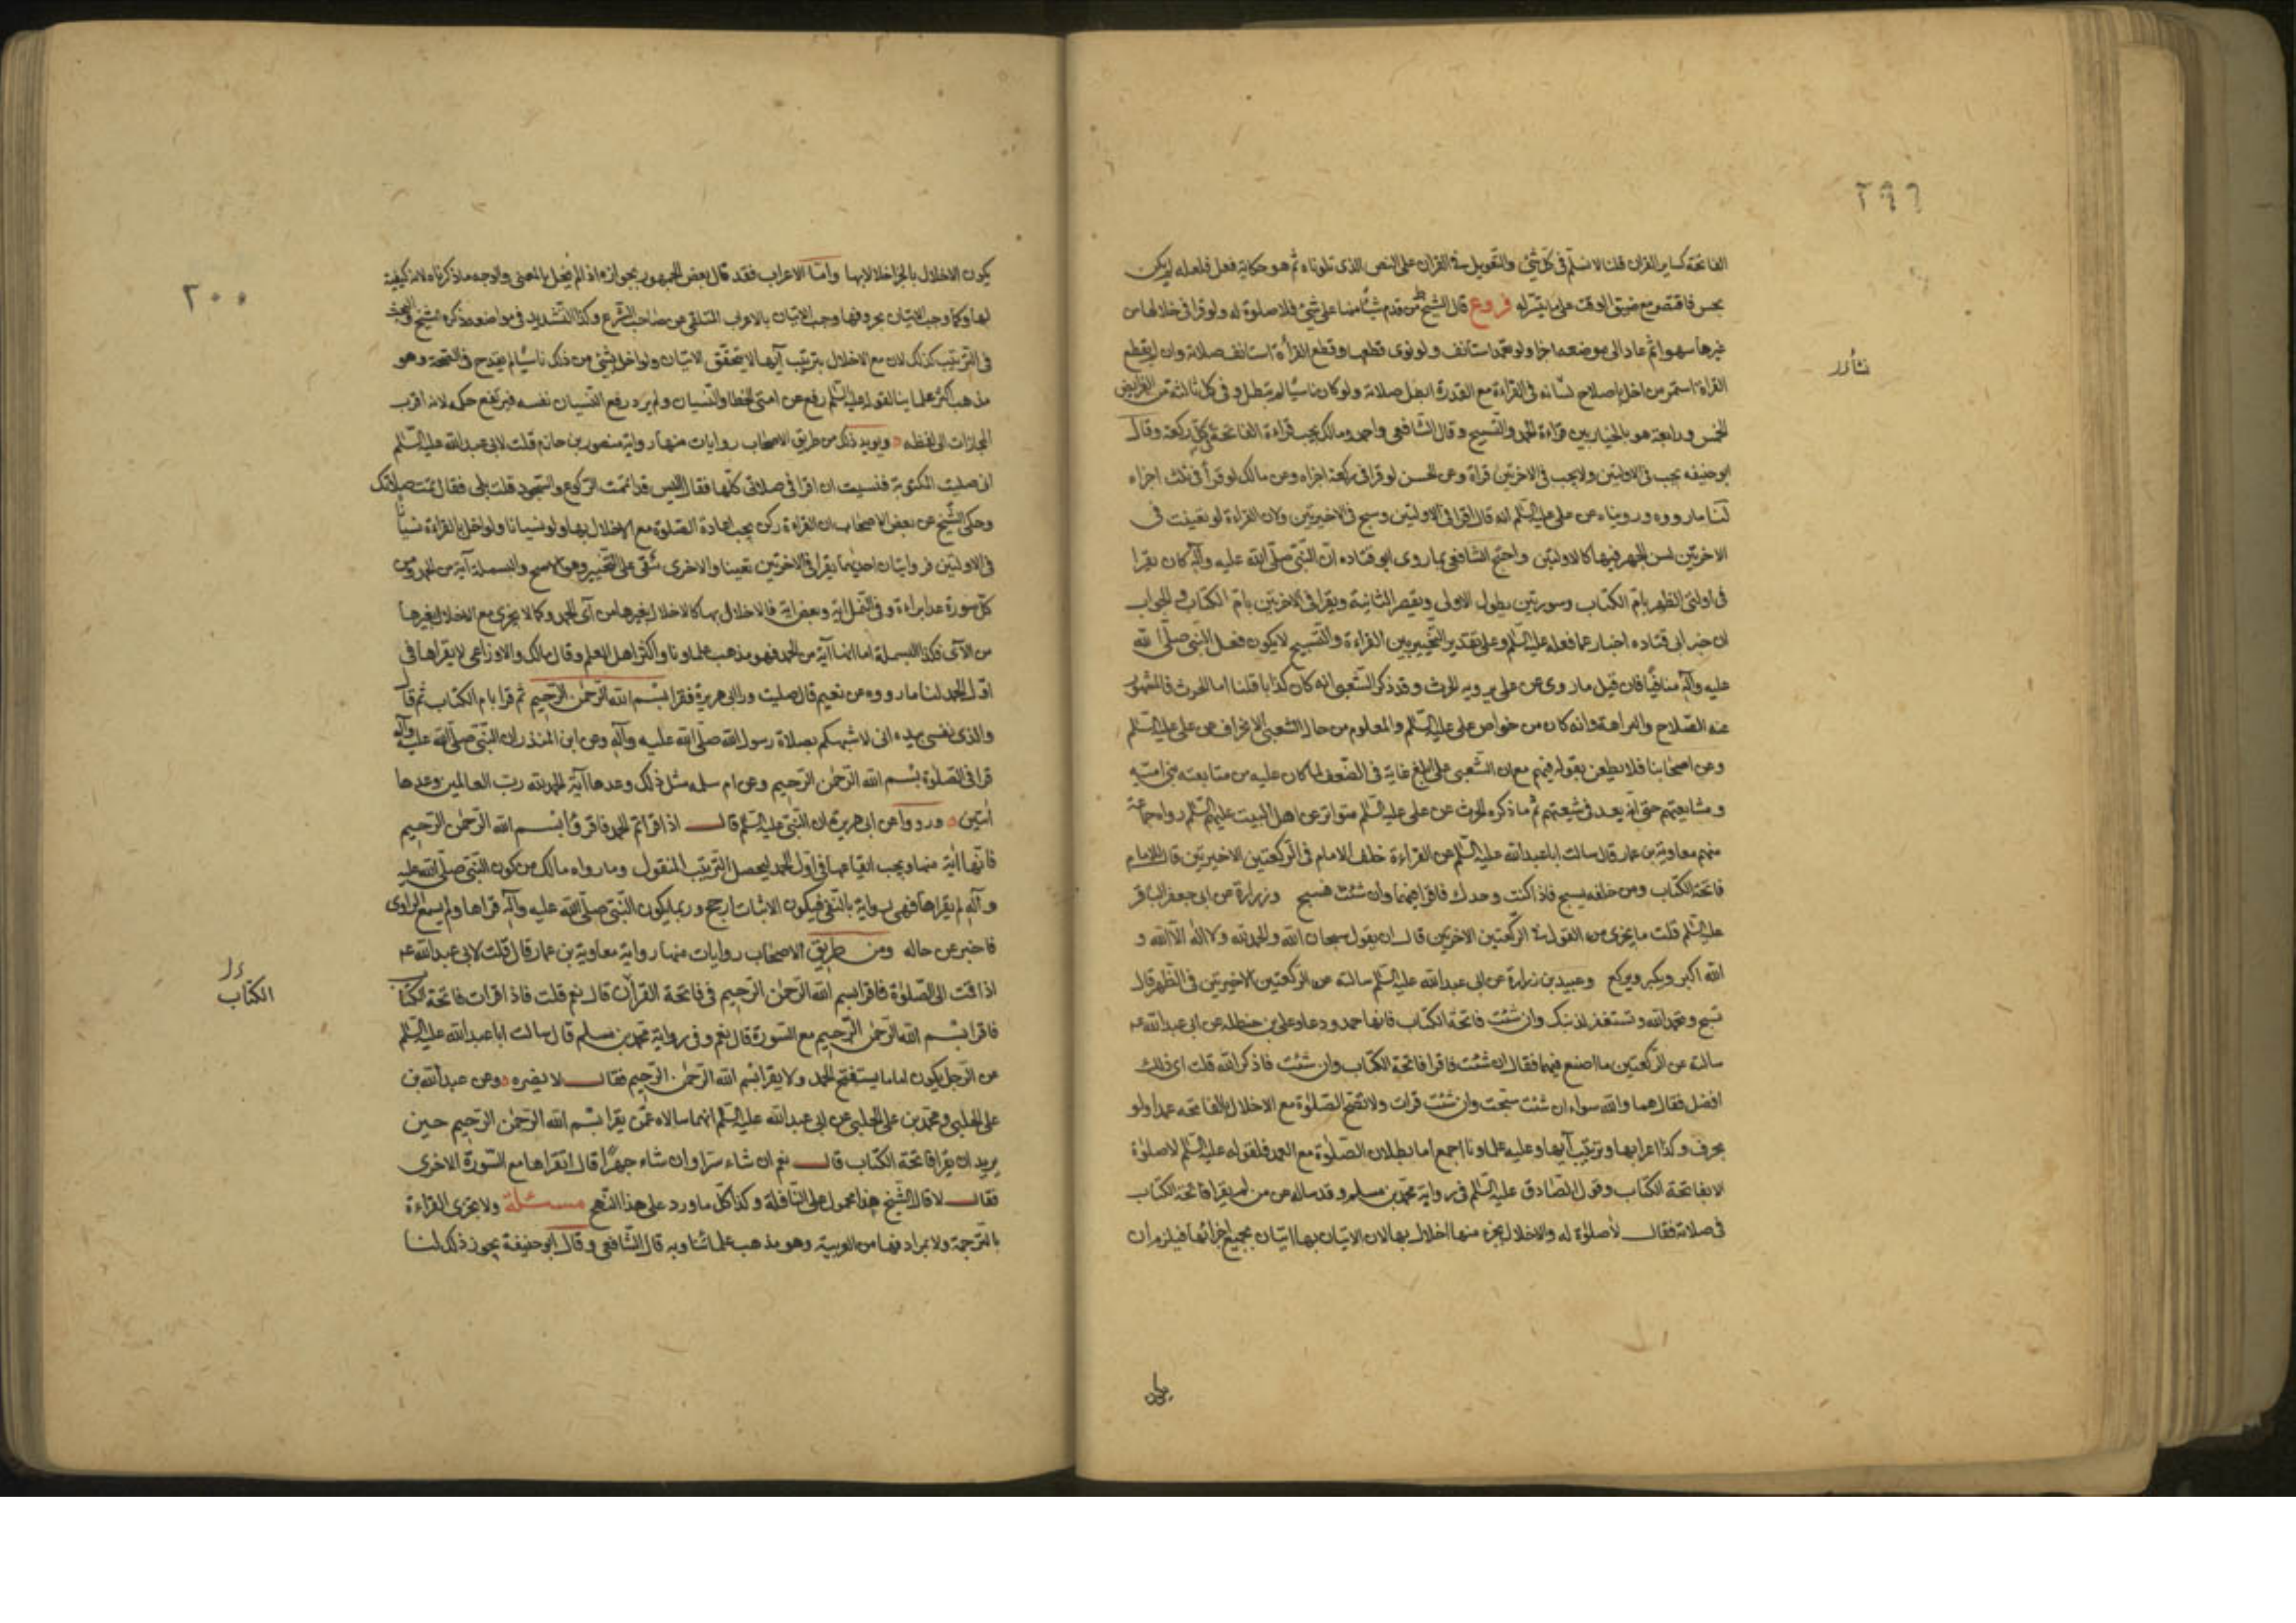 ٢٩٩
الفاتحة كساير القران قلنا لا نسلم فى كل شئ والتعويل فى القران على النص الذى تلوناه ثم هو حكاية فعل فلعله لم يكن
يحسن فاقتصر مع ضيق الوقت على ما يتيسر له فروع قال الشيخ من قدم شيئا منها على شئ فلا صلوة له ولو قرا فى خلالها من
غيرها سهوا ثم عاد الى موضعه اجزا ولو عمدا استانف ولو نوى قطعها وقطع القراة استانف صلاته وان لم يقطع
القراة استمر من اخل باصلاح لسانه فى القراءة مع القدرة ابطل صلاته ولو كان ناسيا لم تبطل وفى كل ثالثة من الفرايض
الخمس ورابعة هو بالخيار بين قراءة الحمد والتسبيح وقال الشافعى واحمد ومالك يجب قراءة الفاتحة فى كل ركعة وقال
ابو حنيفه يجب فى الاولتين ولا يجب فى الاخرتين قراة وعن الحسن لو قرا فى ركعة اجزاه وعن مالك لو قرأ فى ثلث اجزاه
لنا ما رووه ورويناه عن على عليه السلم انه قال اقرا فى الاولتين وسبح فى الاخيرتين ولان القراءة لو تعينت فى
الاخرتين لسن الجهر فيها كالاولتين واحتج الشافعى بما روى ابو قتاده ان النبى صلى الله عليه وآله كان يقرا
فى اولتى الظهر بام الكتاب وسورتين يطول الاولى ويقصر الثانية ويقرا فى الاخرتين بام الكتاب والجواب
ان خبر ابى قتاده اخبار عما فعله عليه السلم وعلى تقدير التخيير بين القراءة والتسبيح لا يكون فعل النبى صلى الله
عليه وآله منافيا فان قيل ما روى عن على يرويه الحرث وقد ذكر الشعبى انه كان كذابا قلنا اما الحرث فالمشهور
عنه الصلاح والبراهة وانه كان من خواص على عليه السلم والمعلوم من حال الشعبى الانحراف عن على عليه السلم
وعن اصحابنا فلا يطعن بقوله فيهم مع ان الشعبى على ابلغ غاية فى الضعف لما كان عليه من متابعته بنى اميه
ومشايعتهم حتى انه يعد فى شيعتهم ثم ما ذكره الحرث عن على عليه السلم متواتر عن اهل البيت عليهم السلم رواه جماعة
منهم معاوية بن عمار قال سالت اباعبدالله عليه السلم عن القراءة خلف الامام فى الركعتين الاخيرتين قال الامام
فاتحة الكتاب ومن خلفه يسبح فاذا كنت وحدك فاقراهما وان شئت فسبح وزرارة عن ابى جعفر الباقر
عليه السلم قلت ما يجزى من القول فى الركعتين الاخرتين قال ان يقول سبحان الله والحمد لله ولا اله الا الله و
الله اكبر ويكبر ويركع وعبيد بن زرارة عن ابى عبدالله عليه السلم سالته عن الركعتين الاخيرتين فى الظهر قال
تسبح وتحمد الله وتستغفر لذنبك وان شئت فاتحة الكتاب فانها تحمد ودعاء وعلى بن حنظله عن ابى عبدالله عه
سالته عن الركعتين ما اصنع فيهما فقال ان شئت فاقرا فاتحة الكتاب وان شئت فاذكر الله قلت اى ذلك
افضل فقال هما والله سواء ان شئت سبحت وان شئت قرات ولا تصح الصلوة مع الاخلال بالفاتحه عمدا ولو
بحرف وكذا اعرابها وترتيب آيها وعليه علماونا اجمع اما بطلان الصلوة مع العمد فلقوله عليه السلم لا صلوة
الا بفاتحة الكتاب وقول الصادق عليه السلم فى رواية محمد بن مسلم وقد ساله عن من لم يقرا فاتحة الكتاب
فى صلاته فقال لا صلوة له والاخلال بجزء منها اخلال بها لان الاتيان بها اتيان بجميع اجزائها فيلزم ان
يكون
٢٠٠
يكون الاخلال بالجزا اخلالا بها واما الاعراب فقد قال بعض الجمهور بجوازه اذا لم يخل بالمعنى والوجه ما ذكرناه لانه كيفية
لها وكما وجب الاتيان بحروفها وجب الاتيان بالاعراب المتلقى من صاحب الشرع وكذا التشديد فى مواضعه ذكره الشيخ والبحث
فى الترتيب كذلك لان مع الاخلال بترتيب آيها لا يتحقق الاتيان ولو اخل بشئ من ذلك ناسيا لم يقدح فى الصحة وهو
مذهب اكثر علماينا لقوله عليه السلم رفع عن امتى الخطا والنسيان ولم يرد رفع النسيان نفسه فيرتفع حكمه لانه اقرب
المجازات الى لفظه ويويد ذلك من طريق الاصحاب روايات منها رواية منصور بن حازم قلت لابى عبدالله عليه السلم
انى صليت المكتوبة فنسيت ان اقرا فى صلاتى كلها فقال اليس قد اتممت الركوع والسجود قلت بلى فقال تمت صلاتك
وحكى الشيخ عن بعض الاصحاب ان القراءة ركن يجب اعادة الصلوة مع الاخلال بها ولو نسيانا ولو اخل بالقراءة نسيانا
فى الاولتين فروايتان احديهما يقرا فى الاخرتين تعينا والاخرى تبقى على التخيير وهى الاصح والبسملة آية من الحمد ومن
كل سورة عدا براءة وفى النمل اية وبعض اية فالاخلال بها كالاخلال بغيرها من آى الحمد وكما لا يجزى مع الاخلال بغيرها
من الآى فكذا البسملة اما انها آية من الحمد فهو مذهب علماونا واكثر اهل العلم وقال مالك والاوزاعى لا يقراها فى
اول الحمد لنا ما رووه عن نعيم قال صليت ورا ابى هريرة فقرا بسم الله الرحمن الرحيم ثم قرا بام الكتاب ثم قال
والذى نفسى بيده انى لاشبهكم بصلاة رسول الله صلى الله عليه وآله وعن ابن المنذر ان النبى صلى الله عليه وآله
قرا فى الصلوة بسم الله الرحمن الرحيم وعن ام سلمه مثل ذلك وعدها آية الحمد لله رب العالمين وعدها
اثنين ورووا عن ابى هريرة ان النبى عليه السلم قال اذا قراتم الحمد فاقروا بسم الله الرحمن الرحيم
فانها اية منها ويجب ايقاعها فى اول الحمد ليحصل الترتيب المنقول وما رواه مالك من كون النبى صلى الله عليه
وآله لم يقراها فهى رواية بالنفى فيكون الاثبات ارجح وربما يكون النبى صلى الله عليه وآله قراها ولم يسمع الراوى
فاخبر عن حاله ومن طريق الاصحاب روايات منها رواية معاوية بن عمار قال قلت لابى عبدالله عه
اذا قمت الى الصلوة فاقرا بسم الله الرحمن الرحيم فى فاتحة القران قال نعم قلت فاذا قرات فاتحة الكتاب
الكتاب
فاقرا بسم الله الرحمن الرحيم مع السورة قال نعم وفى رواية محمد بن مسلم قال سالت اباعبدالله عليه السلم
عن الرجل يكون اماما يستفتح الحمد ولا يقرا بسم الله الرحمن الرحيم فقال لا يضره وعن عبدالله بن
على الحلبى ومحمد بن على الحلبى عن ابى عبدالله عليه السلم انهما سالاه عمن يقرا بسم الله الرحمن الرحيم حين
يريد ان يقرا فاتحة الكتاب قال نعم ان شاء سرا وان شاء جهرا قال ايقراها مع السورة الاخرى
فقال لا قال الشيخ هذا محمول على النافلة وكذا كل ما ورد على هذا النهج مسئلة ولا يجزى القراءة
بالترجمة ولا بمرادفها من العربية وهو مذهب علمائنا وبه قال الشافعى وقال ابو حنيفة يجوز ذلك لنا